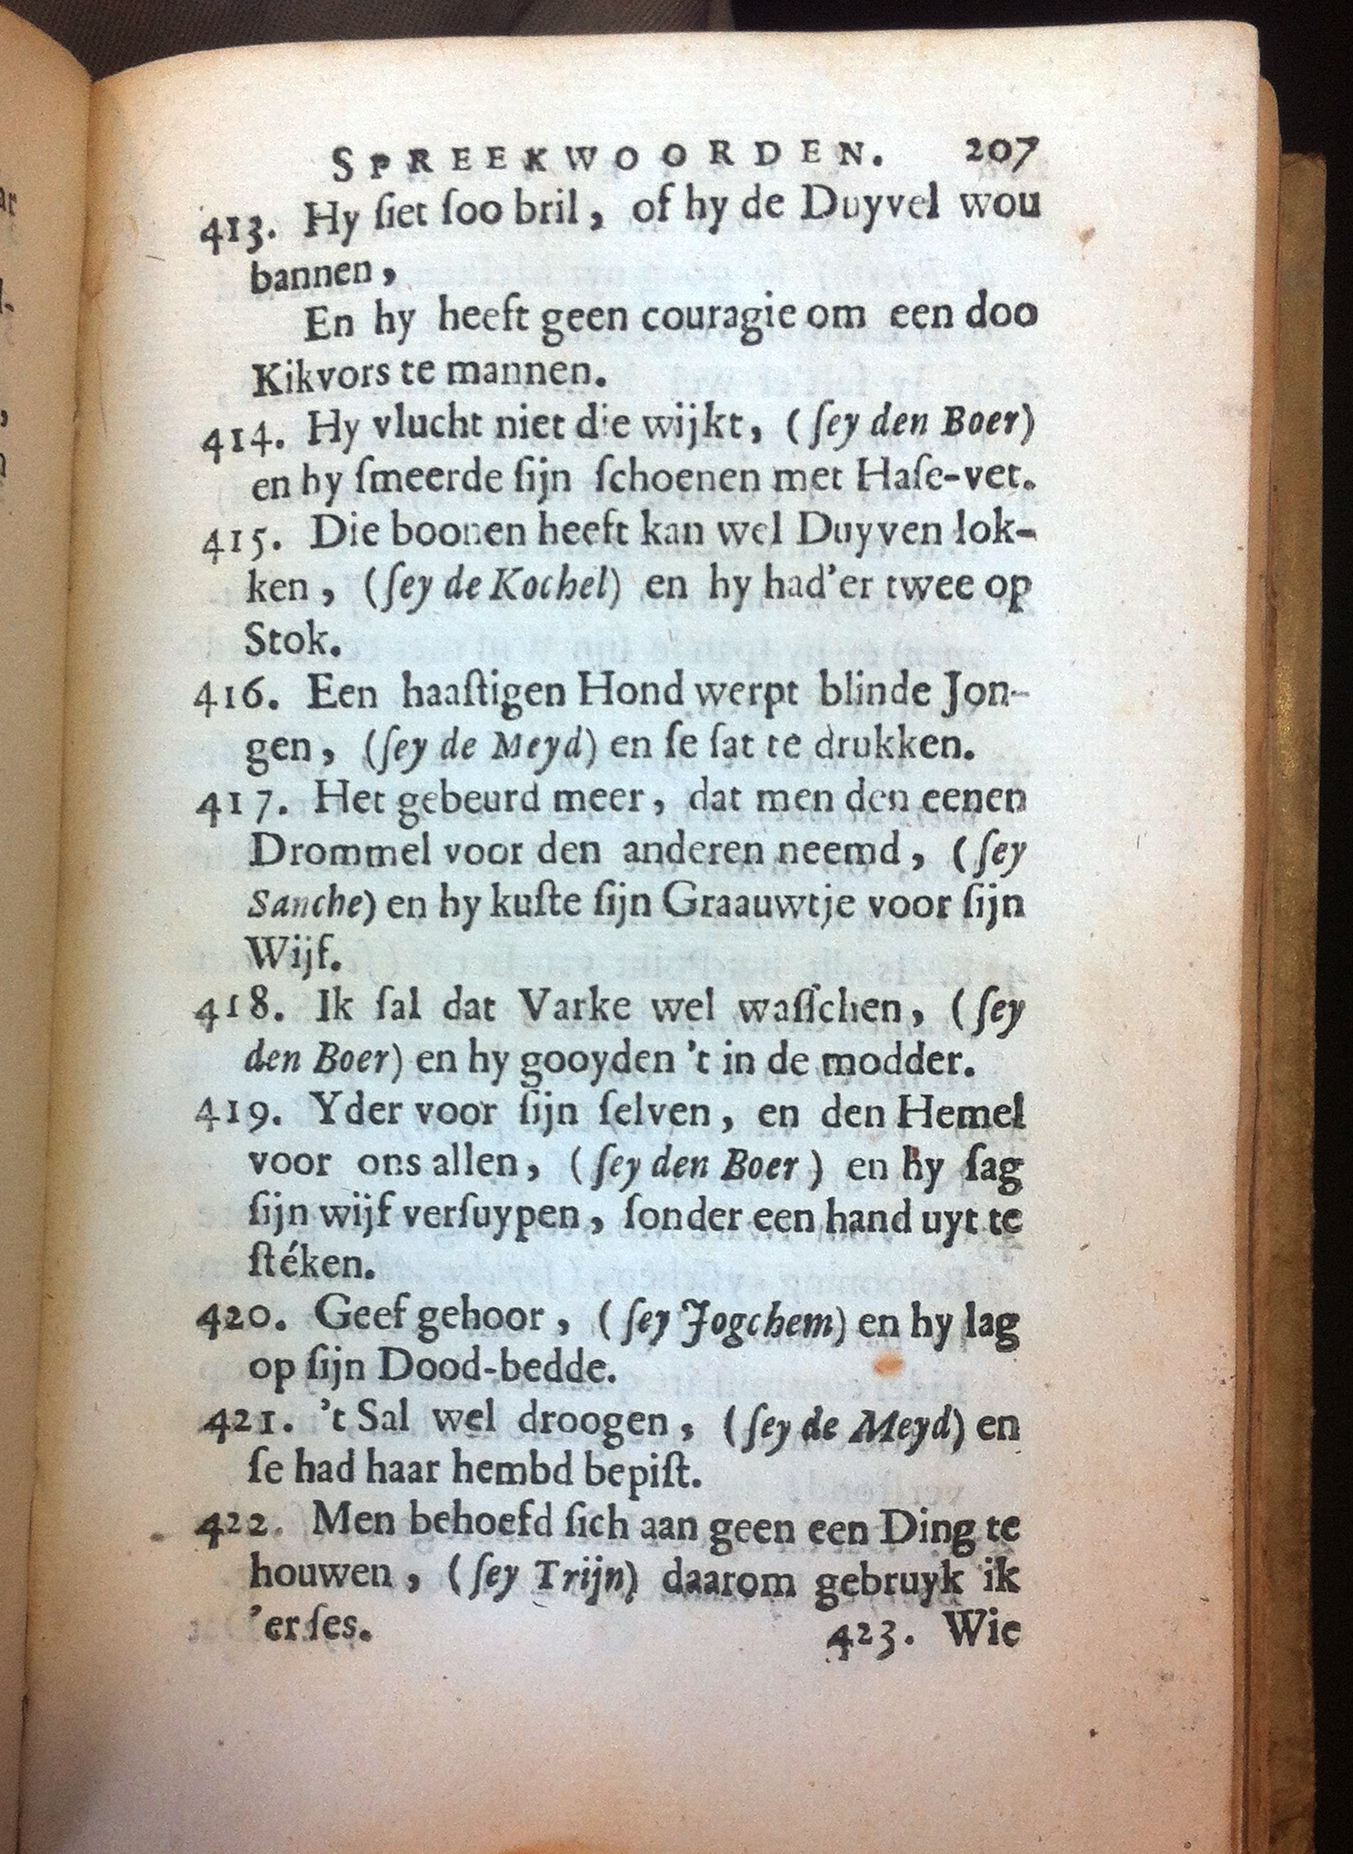 SPREEKWOORDEN. 207
413. Hy ſiet ſoo bril, of hy de Duyvel wou
bannen,
En hy heeft geen couragie om een doo
Kikvors te mannen.
414. Hy vlucht niet die wijkt, (ſey den Boer)
en hy ſmeerde ſijn ſchoenen met Haſe-vet.
415. Die boonen heeft kan wel Duyven lok-
ken, (ſey de Kochel) en hy had'er twee op
Stok.
416. Een haaſtigen Hond werpt blinde Jon-
gen, (ſey de Meyd) en ſe ſat te drukken.
417. Het gebeurd meer, dat men den eenen
Drommel voor den anderen neemd, (ſey
Sanche) en hy kuſte ſijn Graauwtje voor ſijn
Wijf.
418. Ik ſal dat Varke wel waſſchen, (ſey
den Boer) en hy gooyden 't in de modder.
419. Yder voor ſijn ſelven, en den Hemel
voor ons allen, (ſey den Boer) en hy ſag
ſijn wijf verſuypen, ſonder een hand uyt te
ſtéken.
420. Geef gehoor, (ſey Jogchem) en hy lag
op ſijn Dood-bedde.
421. 't Sal wel droogen, (ſey de Meyd) en
ſe had haar hembd bepiſt.
422. Men behoefd ſich aan geen een Ding te
houwen, (ſey Trijn) daarom gebruyk ik
'er ſes.
423. Wie